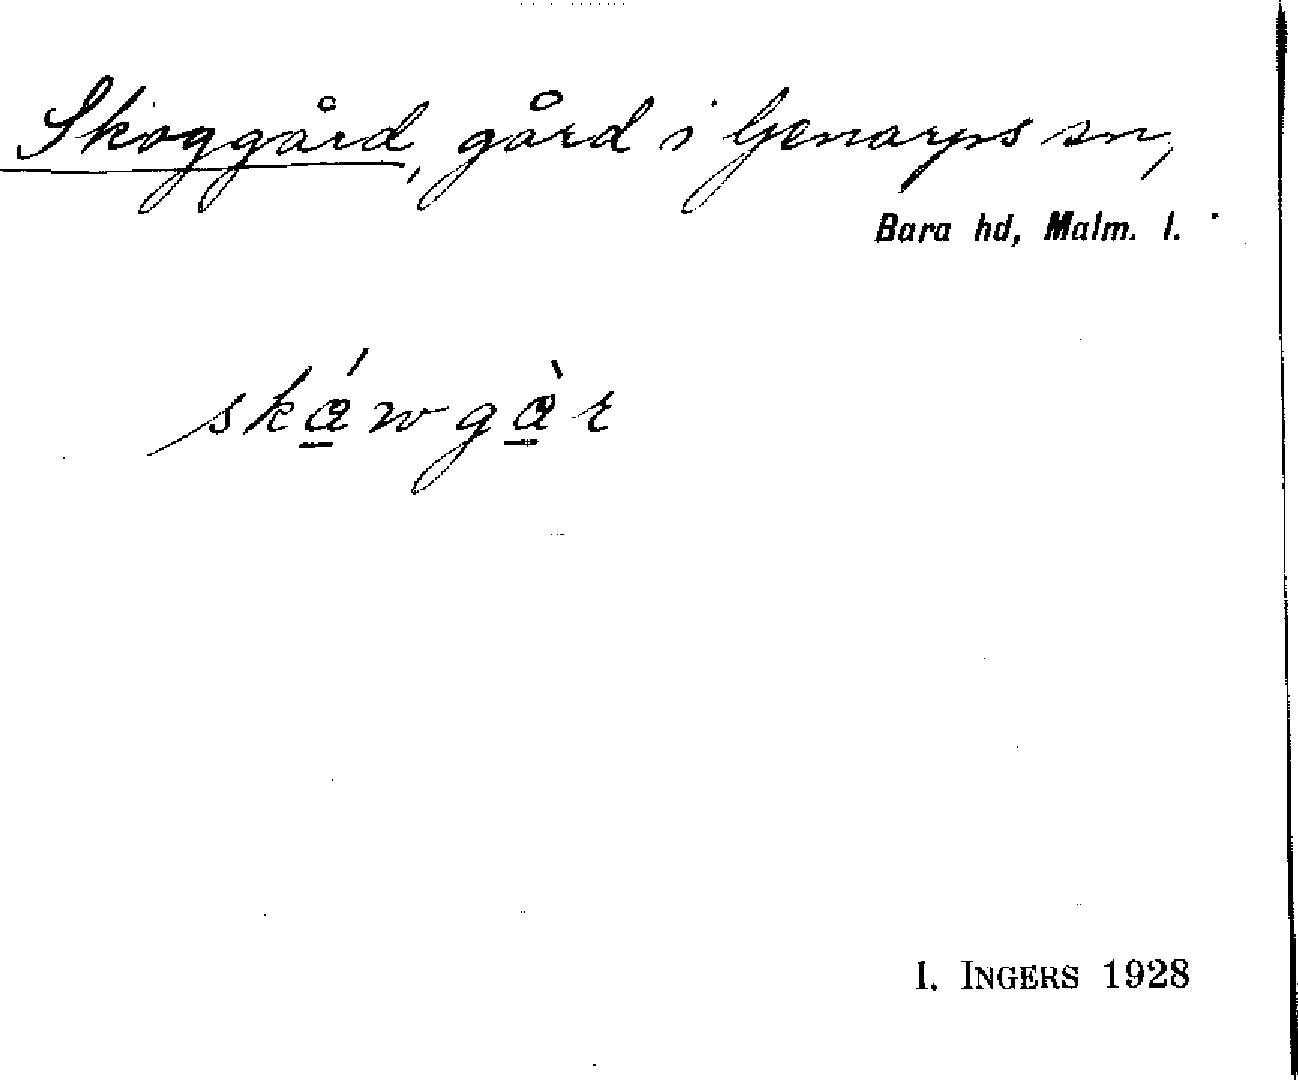 Skoggård, gård i Genarps sn,
Bara hd, Malm. l.
ská̲wgà̲r
I. INGERS 1928